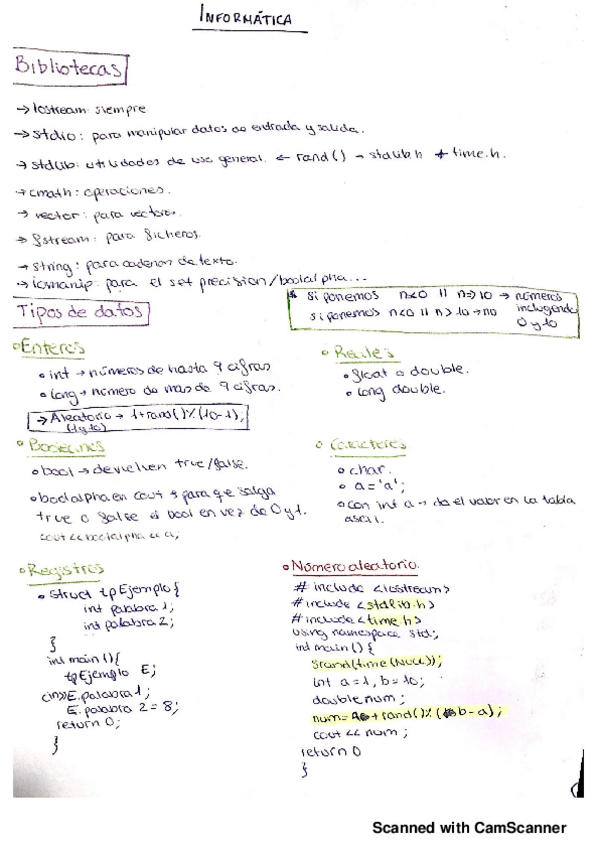 INFORMÁTICA
Bibliotecas
→ Iostream: siempre
→ stdio: para manipular datos de entrada y salida.
→ stdlib: utilidades de uso general. ← rand() → stdlib.h + time.h.
→ cmath: operaciones.
→ vector: para vectores.
→ fstream: para ficheros.
→ string: para cadenas de texto.
→ iomanip: para el set precision/boolalpha...
si ponemos n<0 || n=>10 → números
si ponemos n<0 || n>10 → no incluyendo
0 y 10
Tipos de datos
Enteros
int → números de hasta 9 cifras
long → número de mas de 9 cifras.
→ Aleatorio → 1+rand()%(10-1),
(1 y 10)
Reales
float o double.
long double.
Booleanos
bool → devuelven true/false.
boolalpha en cout → para que salga
true o false el bool en vez de 0 y 1.
cout << boolalpha << a;
Caracteres
char.
a='a';
con int a → da el valor en la tabla
ascii.
Registros
struct tpEjemplo {
int palabra 1;
int palabra 2;
}
int main () {
tpEjemplo E;
cin>>E.palabra 1;
E.palabra 2 = 8;
return 0;
}
Número aleatorio.
# include <iostream>
# include <stdlib.h>
# include <time.h>
using namespace std;
int main () {
srand(time(NULL));
int a=1, b=10;
double num;
num= + rand()% (b-a);
cout << num;
return 0
}
Scanned with CamScanner